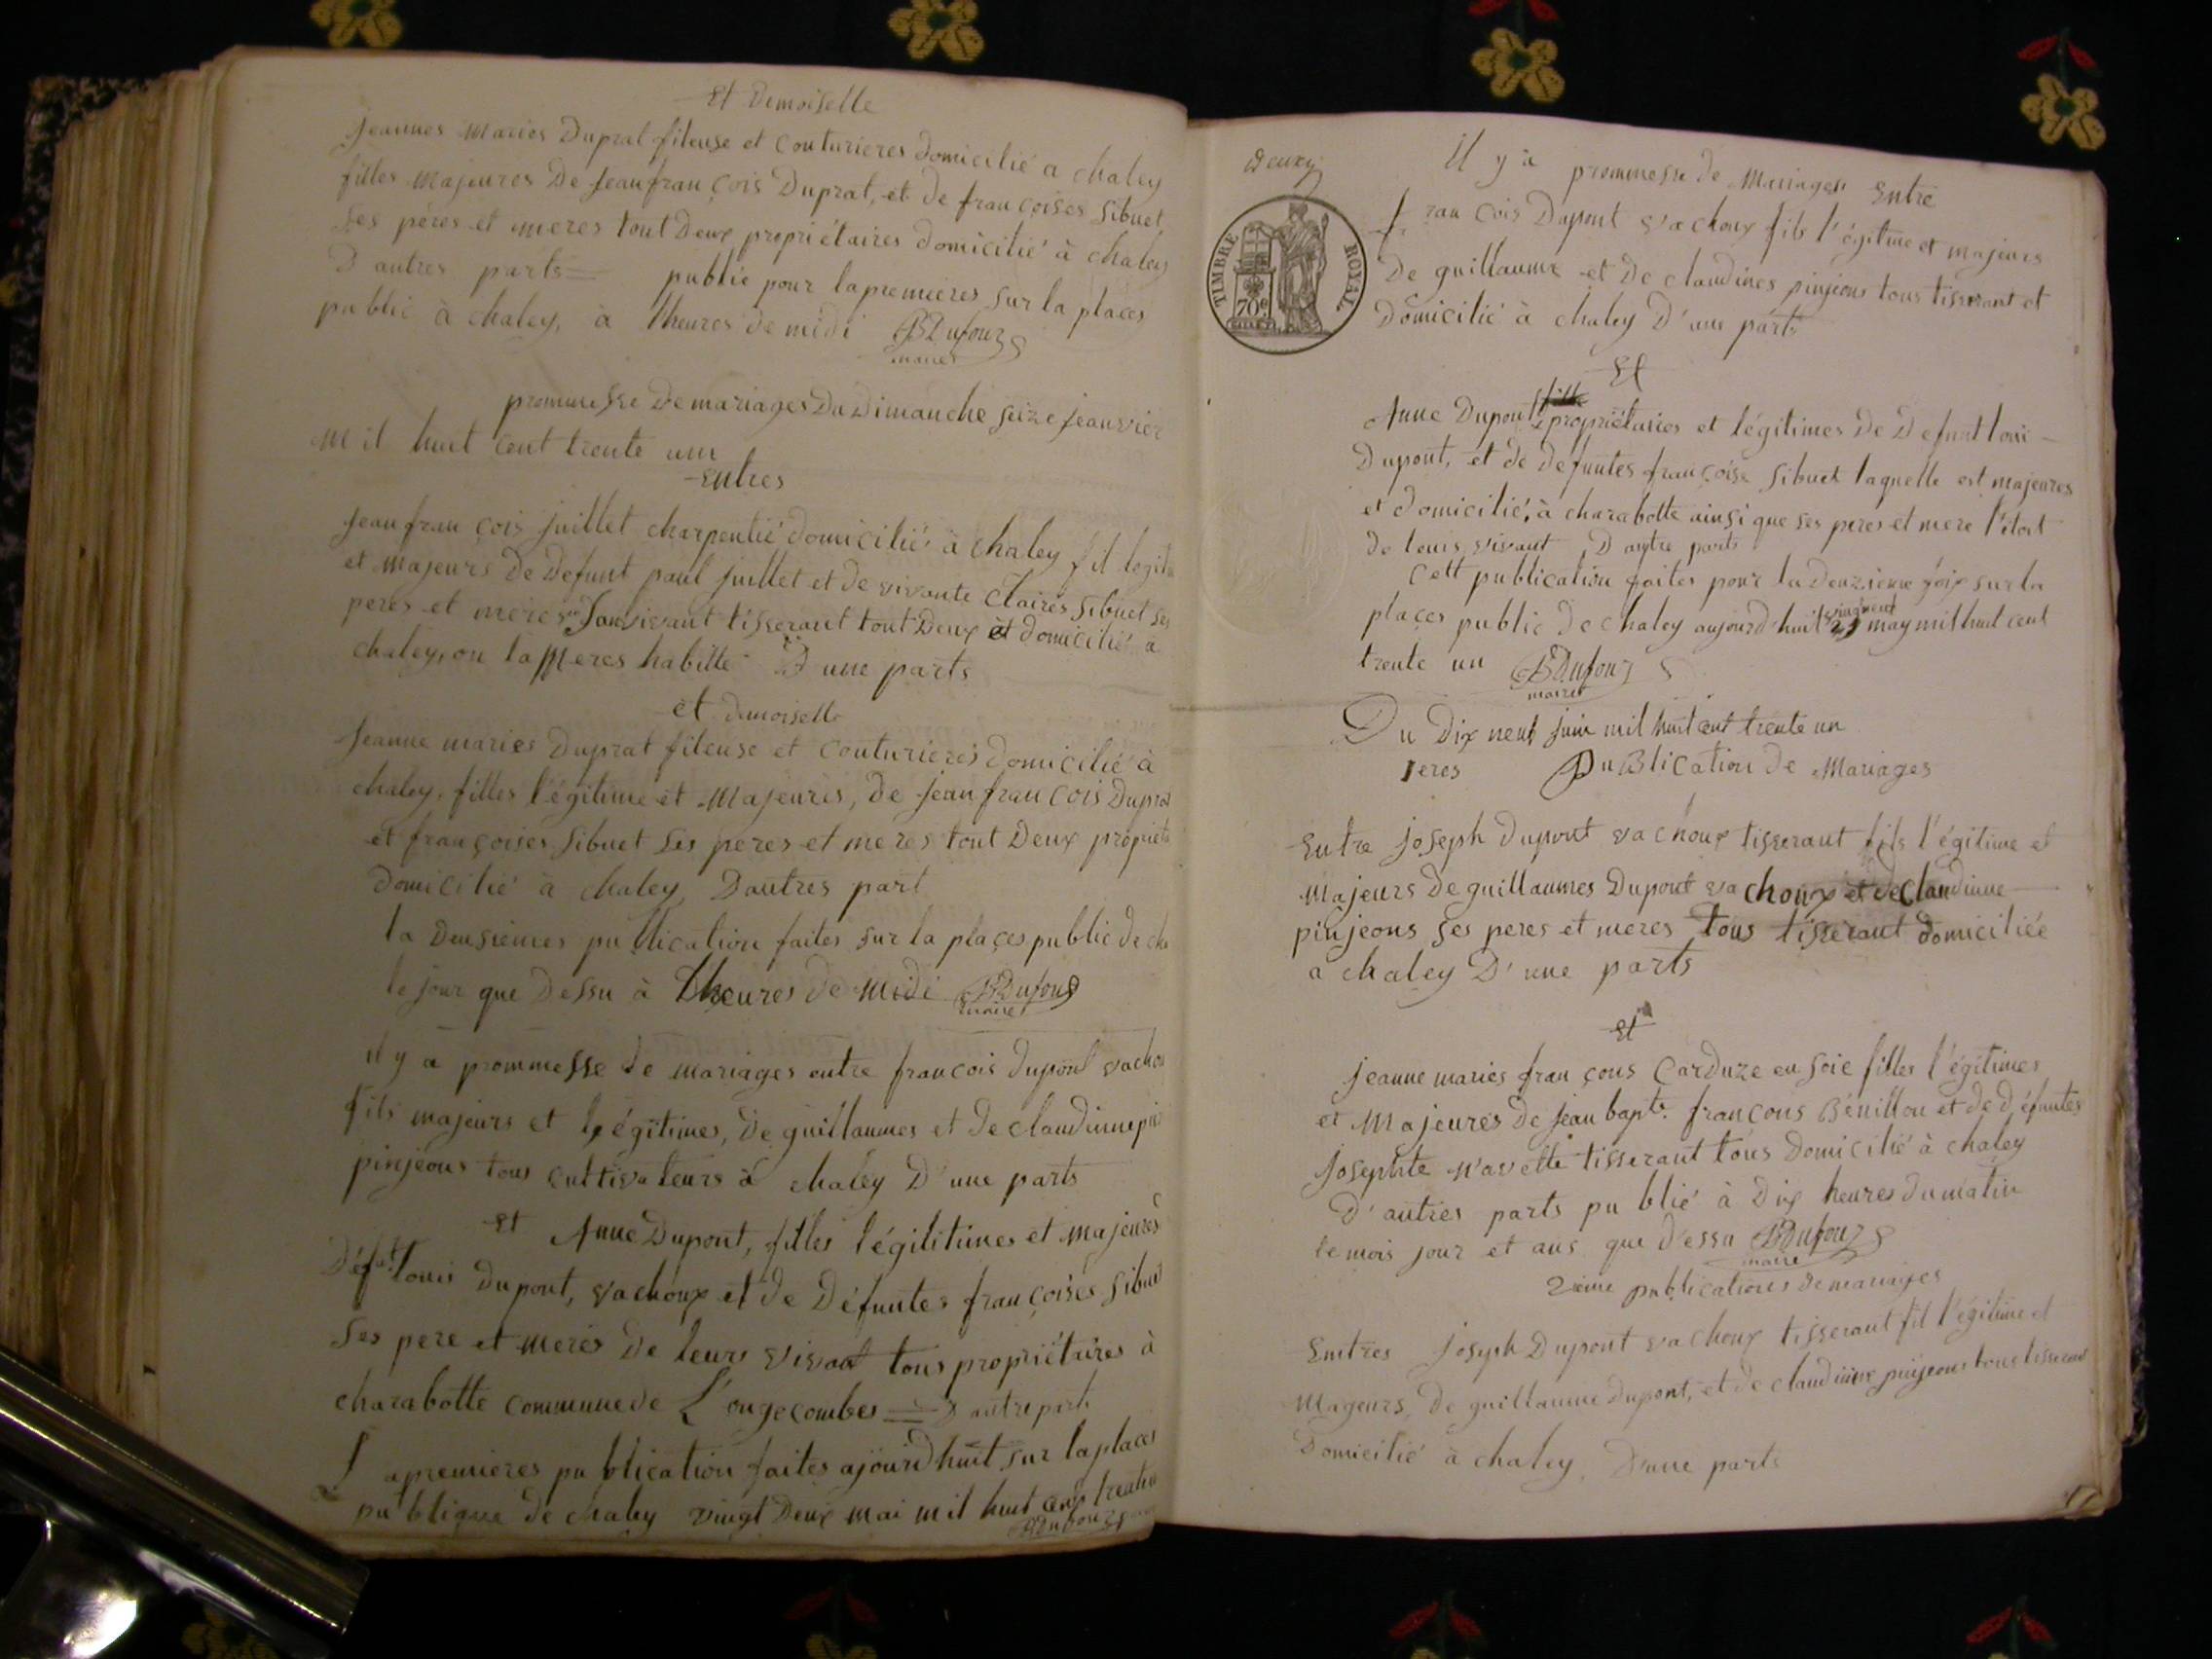 Et Demoiselle
Jeannes Maries Duprat fileuse et Couturieres domicilié a chaley
filles Majeures De Jean françois Duprat, et de françoises Sibuet
Ses péres et meres tout Deux propriétaires domicilié à chaley
D autres parts = publié pour la premieres sur la places
public à chaley, à l'heures de midi BDufour
maire
prommesse De mariages Du Dimanche seize jeanvier
Mil huit cent trente un
Entres
Jean fran çois juillet charpentié domicilié à chaley fil legiti
et majeurs De Defunt paul juillet et de vivante Claires Sibuet ses
peres et meres vivant tisserant tout Deux et domicilié à
chaley, ou la Meres habitte D une parts
et demoiselle
Jeanne maries Duprat fileuse et Couturieres domicilié à
chaley, filles l'égitime et Majeures, de Jean fran çois Duprat
et françoises Sibuet Ses peres et meres tout Deux propriét
domicilié à chaley, D'autres part
la Deusiemes publication faites sur la places public de cha
le jour que Dessu à l'heures de Midi BDufour
maire
il y a prommesse de mariages entre francois dupont vachou
fils majeurs et légitimes, de guillaumes et de claudinne pin
pinjeons tous cultivateurs à chaley D'une parts
Et Anne Dupont, filles légilitimes et majeures
Défut. Louis Dupont, vachoux et de Défuntes françoises Sibuet
Ses pere et meres De leurs vivant tous propriétaires à
charabotte commune de L'ongecombes = D autre parts
L apremieres pu blication faites ajourd huit sur la places
pu blique de chaley vingt Deux mai mil huit cent trente
BDufour
Deuxy
TIMBRE ROYAL
70c
Il y à prommesse de Mariages Entre
f ran cois Dupont vachoux fils l'égitime et majeurs
De guillaume et De claudines pinjeons tous tisserant et
Domicilié à chaley D'une parts
Et
Anne Dupont propriétaires et légitimes De Defunt loui
Dupont, et de défuntes françoise Sibuet laquelle est majeures
et domicilié, à charabotte ainsi que ses peres et mere l'étoit
de leurs vivant, D autre parts
Cett publication faites pour la deuzieme foix sur la
places public de chaley aujourd'huit 29 may mil huit cent
trente un BDufour
maire
Du Dix neuf juin mil huit cent trente un
1eres PuBlication de Mariages
Entre Joseph dupont vachoux tisserant fils l'égitime et
Majeurs De guillaumes Dupont va choux et de Claudinne
pinjeons Ses peres et meres tous tisserant domiciliée
a chaley D'une parts
Et
Jeanne maries fran çons Carduze en soie filles l'égitimes
et Majeures de Jean bapte. françons Bénillou et de d, éfuntes
Josephte navette tisserant tous Domicilié à chaley
D'autres parts pu blié à Dix heures du matin
le mois jour et ans que d'essu BDufour
maire
2ieme publications de mariages
Entres Joseph Dupont vachoux tisserant fil l'égitime et
Mageurs, de guillaume Dupont, et de claudinne pinjeons tous tisserant
Domicilié à chaley D'une parts